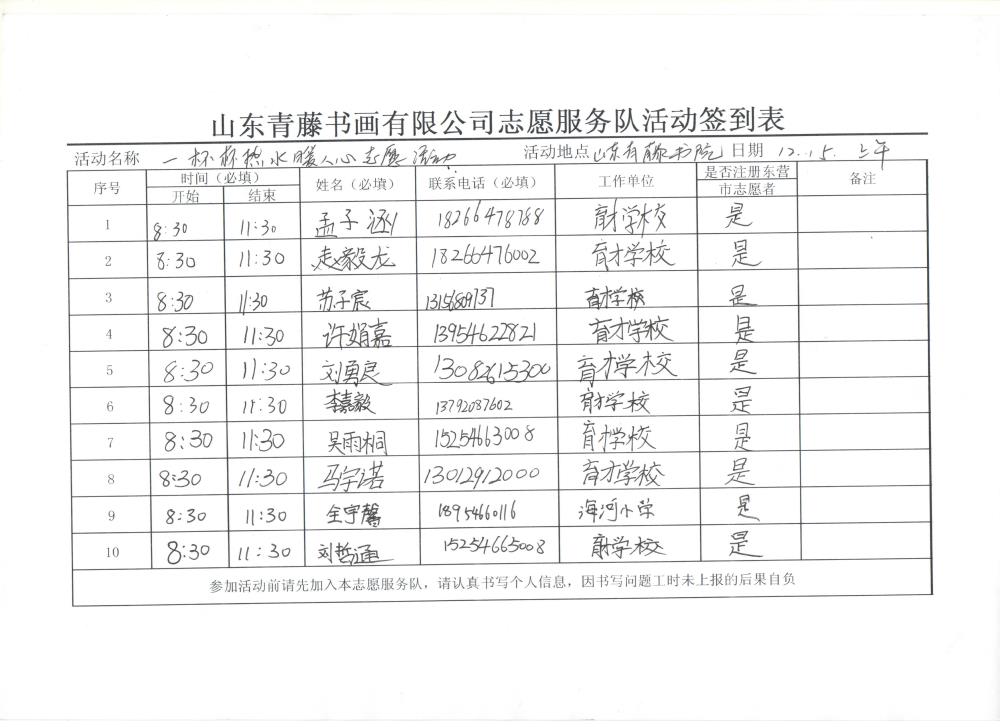 山东青藤书画有限公司志愿服务队活动签到表
活动名称 一杯杯热水暖人心志愿活动 活动地点 山东青藤书院 日期 12.15. 上午
序号 时间（必填） 姓名（必填） 联系电话（必填） 工作单位 是否注册东营市志愿者 备注
开始 结束
1 8:30 11:30 孟子涵 18266478788 育才学校 是
2 8:30 11:30 赵毅龙 18266476002 育才学校 是
3 8:30 11:30 苏子宸 1315689737 育才学校 是
4 8:30 11:30 许娟嘉 13954622821 育才学校 是
5 8:30 11:30 刘勇良 13082615300 育才学校 是
6 8:30 11:30 李嘉毅 13792087602 育才学校 是
7 8:30 11:30 吴雨桐 15254663008 育才学校 是
8 8:30 11:30 马宇诺 13012912000 育才学校 是
9 8:30 11:30 全宇馨 18954660116 海河小学 是
10 8:30 11:30 刘哲涵 15254665008 育才学校 是
参加活动前请先加入本志愿服务队，请认真书写个人信息，因书写问题工时未上报的后果自负